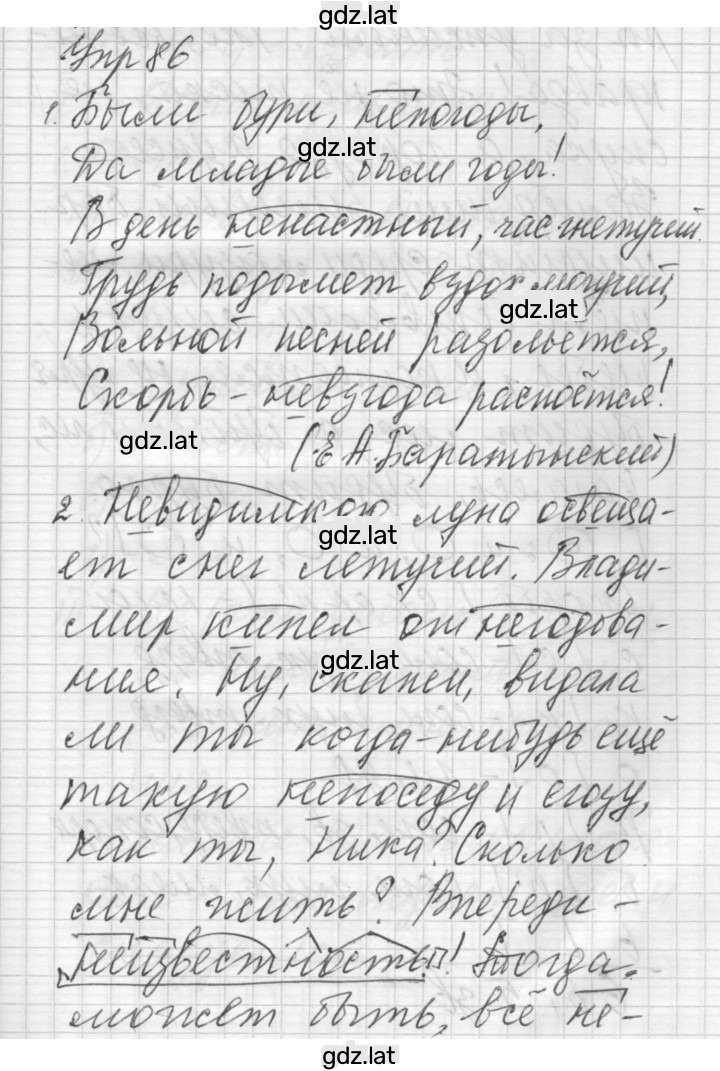 gdz.lat
Упр 86
1. Были бури, непогоды,
gdz.lat
Да младые были годы!
В день ненастный, час гнетучий
Грудь подымет вздох могучий,
gdz.lat
Вольной песней разольётся,
Скорбь - невзгода распоётся!
gdz.lat
(Е.А.Баратынский)
2. Невидимкою луна освеща-
gdz.lat
ет снег летучий. Влади-
мир кипел от негодова-
gdz.lat
ния. Ну, скажи, видала
ли ты когда-нибудь ещё
такую непоседу и егозу,
как ты, Ника? Сколько
мне жить? Впереди -
неизвестность! Тогда,
может быть, всё не-
gdz.lat